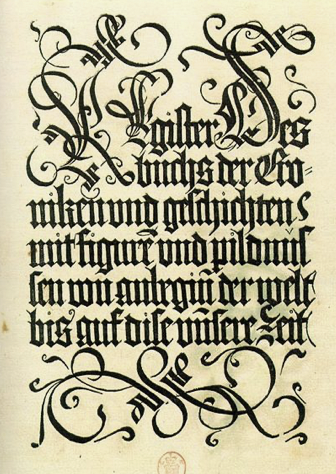 Register Des
buchs der Cro-
niken und geschichten
mit figurē und pildnüs
sen von anbegiñ der welt
bis auf dise unsere Zeit